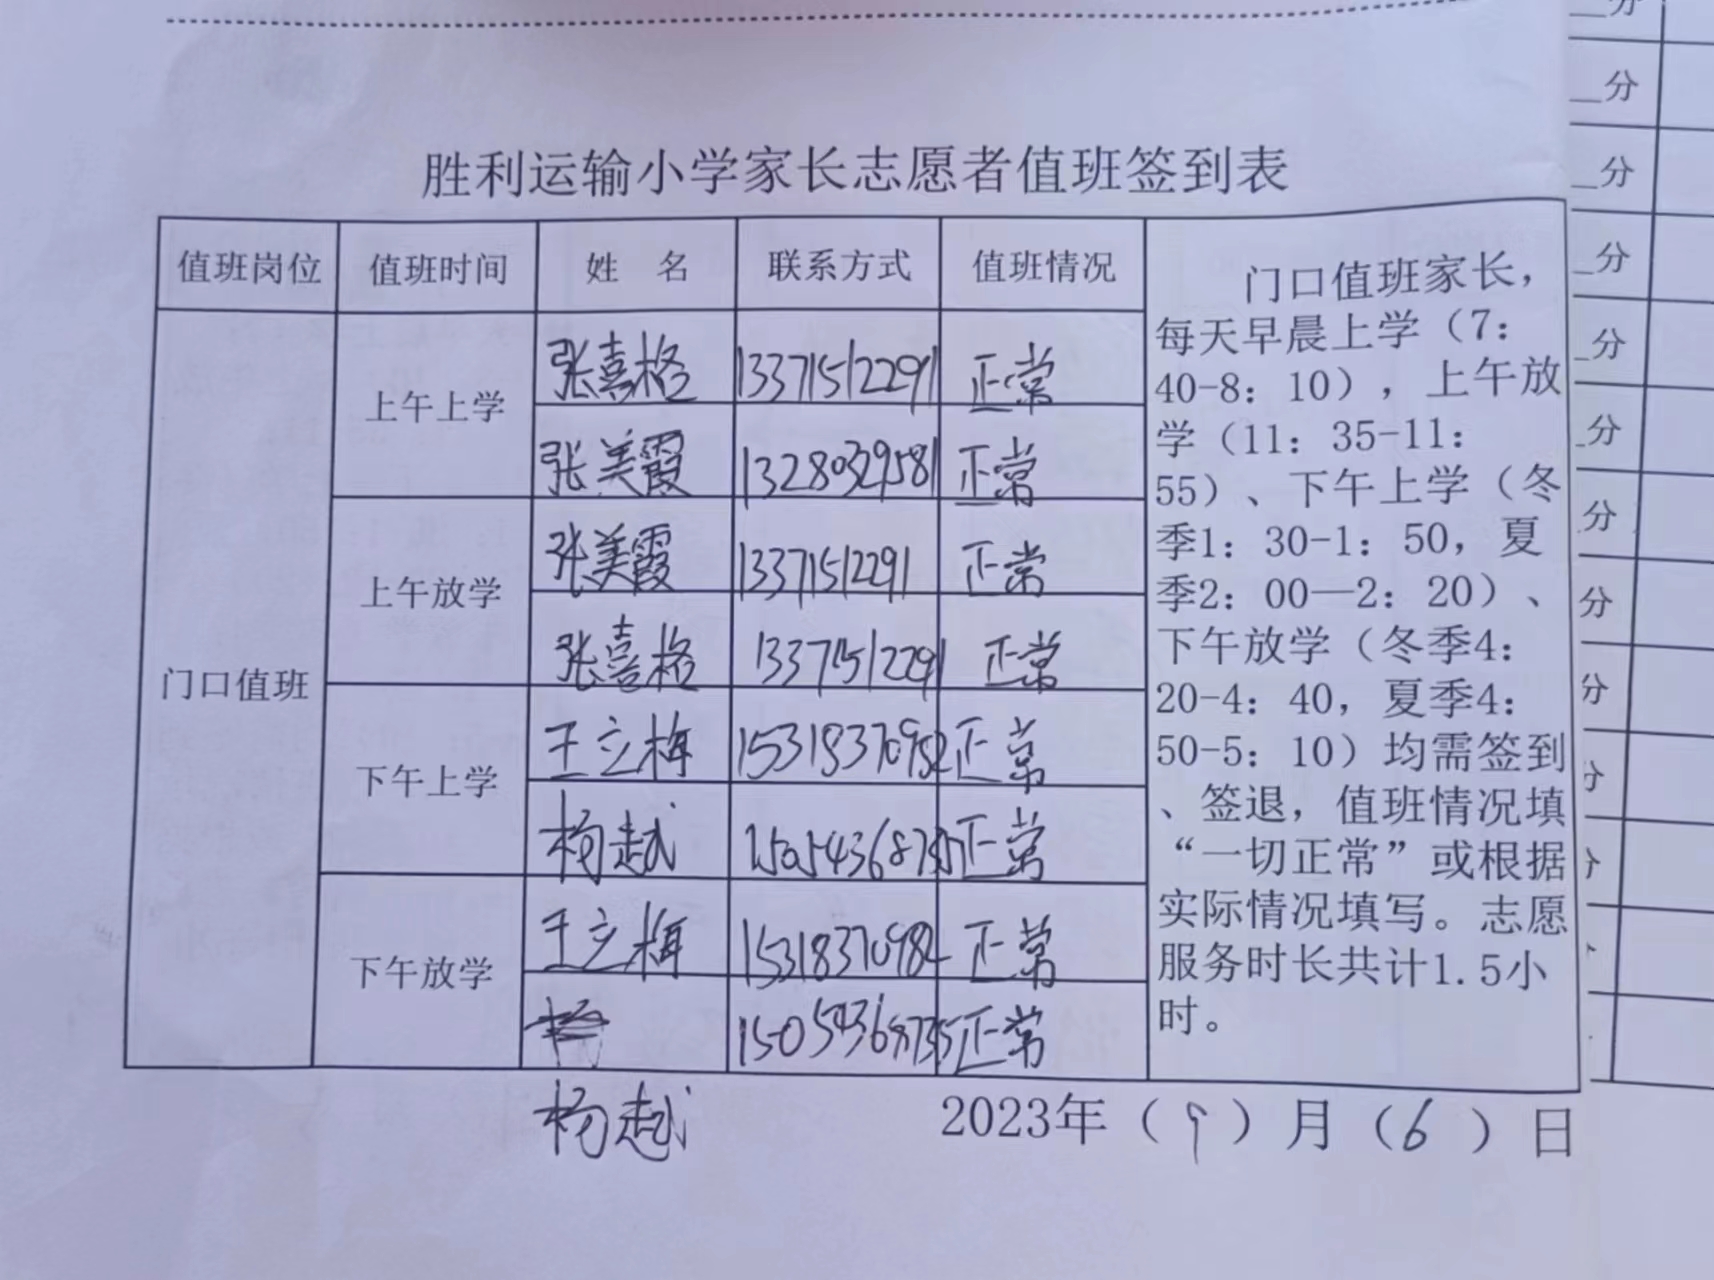 胜利运输小学家长志愿者值班签到表
值班岗位 值班时间 姓 名 联系方式 值班情况
门口值班
上午上学
张喜格 13371512291 正常
张美霞 13280329581 正常
上午放学
张美霞 13371512291 正常
张喜格 13371512291 正常
下午上学
王立梅 15318370982 正常
杨越 15054368735 正常
下午放学
王立梅 15318370982 正常
15054368735 正常
杨越
门口值班家长，
每天早晨上学（7：
40-8：10），上午放
学（11：35-11：
55）、下午上学（冬
季1：30-1：50，夏
季2：00—2：20）、
下午放学（冬季4：
20-4：40，夏季4：
50-5：10）均需签到
、签退，值班情况填
“一切正常”或根据
实际情况填写。志愿
服务时长共计1.5小
时。
2023年（9）月（6）日
分
分
分
分
分
分
分
分
分
分
分